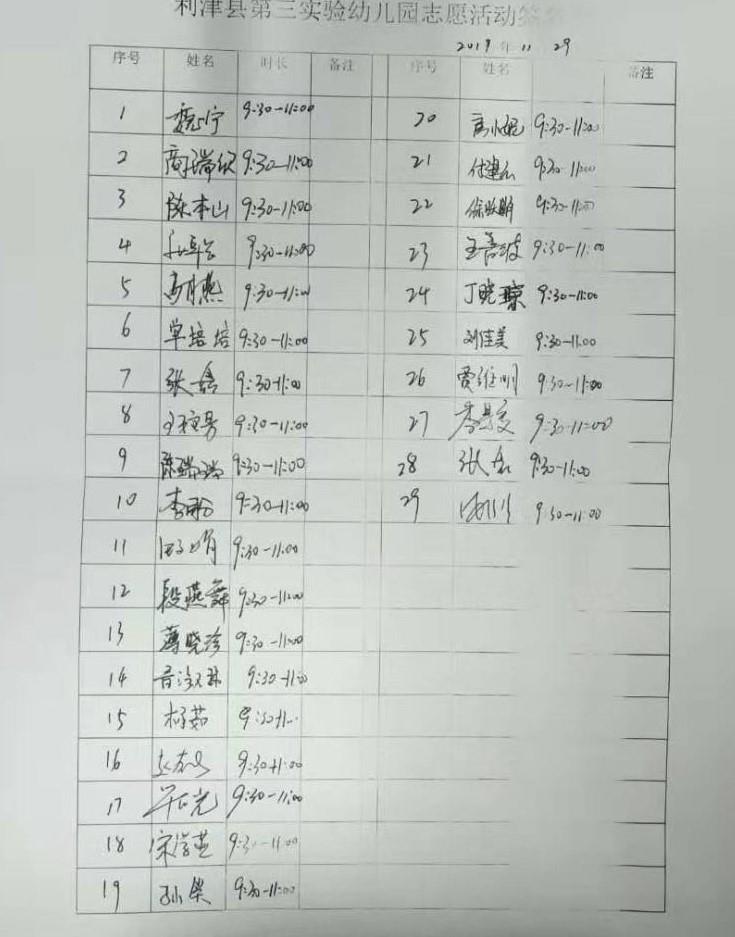 利津县第三实验幼儿园志愿活动签
2019年11 29
序号 姓名 时长 备注 序号 姓名 备注
1 魏宁 9:30-11:00 20 高小妮 9:30-11:00
2 商瑞欣 9:30-11:00 21 付建 9:30-11:00
3 陈本山 9:30-11:00 22 徐 9:30-11:00
4 9:30-11:00 23 王善波 9:30-11:00
5 马月燕 9:30-11:00 24 丁晓琼 9:30-11:00
6 单培培 9:30-11:00 25 刘佳美 9:30-11:00
7 张 9:30-11:00 26 贾维明 9:30-11:00
8 9:30-11:00 27 李 9:30-11:00
9 陈瑞瑞 9:30-11:00 28 张 9:30-11:00
10 李 9:30-11:00 29 9:30-11:00
11 9:30-11:00
12 段燕舞 9:30-11:00
13 薄晓珍 9:30-11:00
14 9:30-11:00
15 杨茹 9:30-11
16 9:30-11:00
17 9:30-11:00
18 宋 9:30-11:00
19 孙荣 9:30-11:00